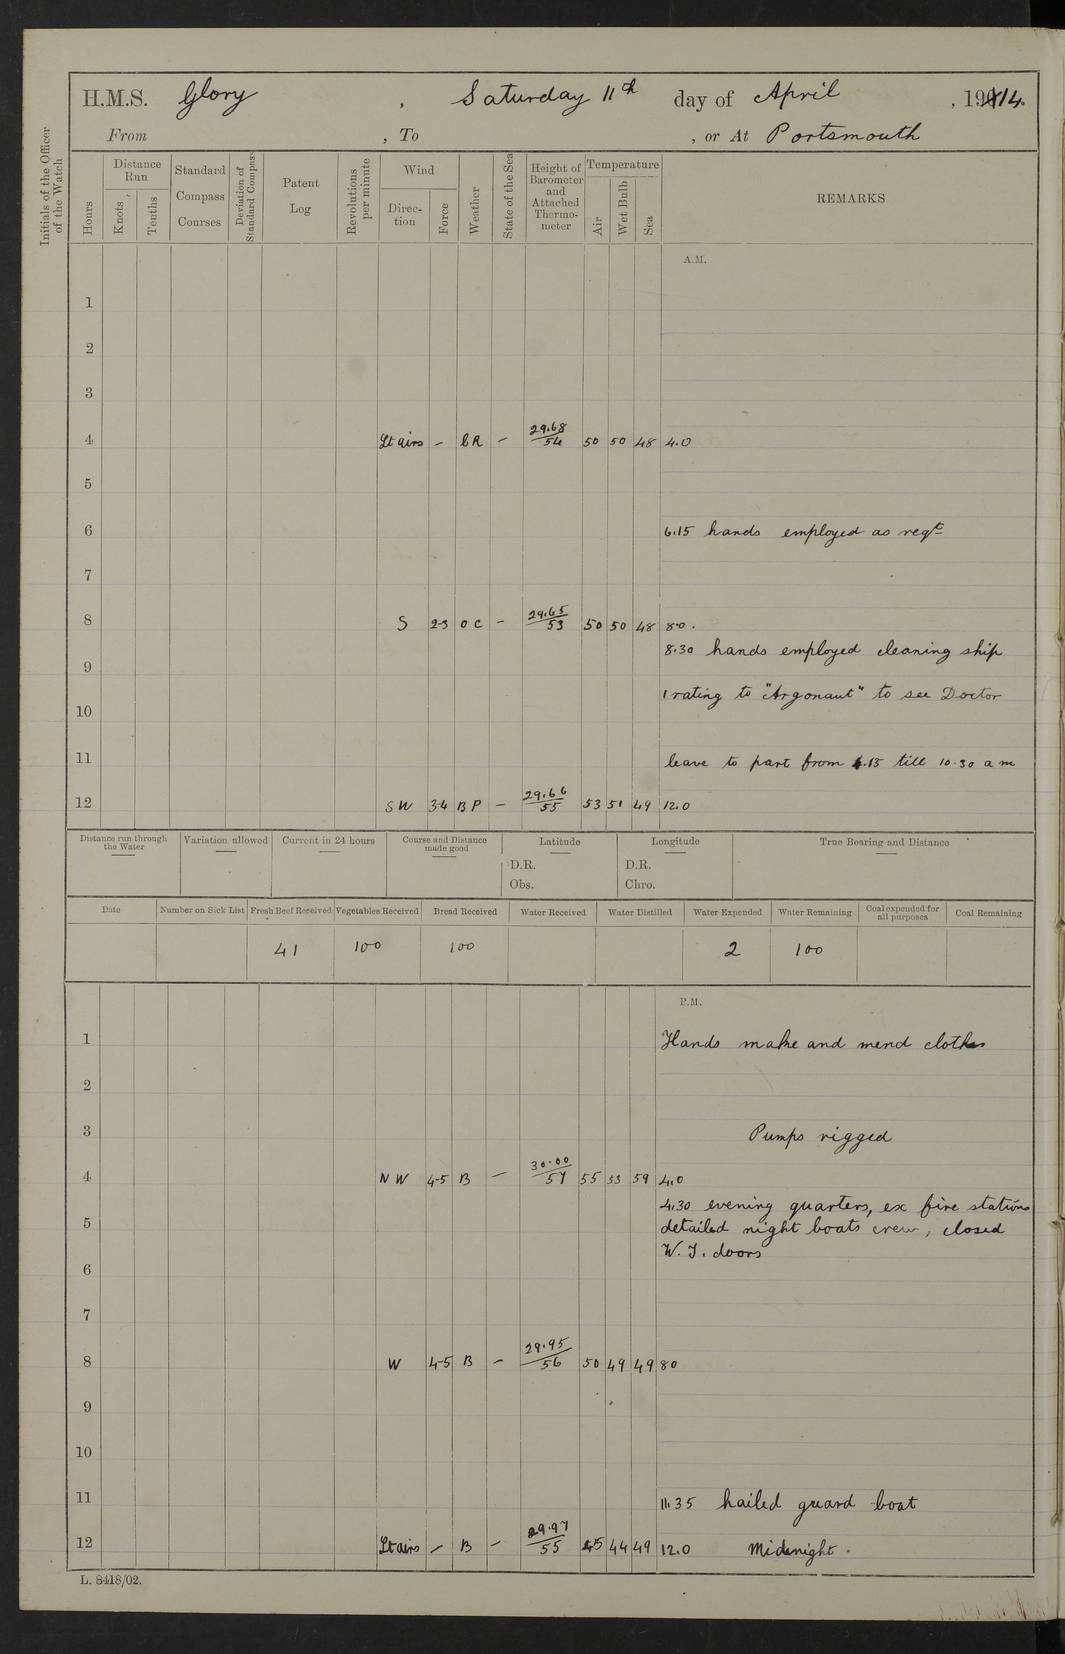 H.M.S. Glory , Saturday 11th day of April , 1914.
From , To , or At Portsmouth
Initials of the Officer of the Watch
Hours
Distance Run
Knots
Tenths
Standard Compass Courses
Deviation of Standard Compass
Patent Log
Revolutions per minute
Wind
Direction
Force
Weather
State of the Sea
Height of Barometer and Attached Thermometer
Temperature
Air
Wet Bulb
Sea
REMARKS
A.M.
1
2
3
4 Lt airs – CR – 29.68/54 50 50 48 4.0
5
6 6.15 hands employed as reqd
7
8 S 2-3 O C – 29.65/53 50 50 48 8.0.
8.30 hands employed cleaning ship
9
1 rating to "Argonaut" to see Doctor
10
11 leave to part from 6.15 till 10.30 a m
12 SW 3-4 B P – 29.66/55 53 51 49 12.0
Distance run through the Water
Variation allowed
Current in 24 hours
Course and Distance made good
Latitude
D.R.
Obs.
Longitude
D.R.
Chro.
True Bearing and Distance
Date Number on Sick List Fresh Beef Received Vegetables Received Bread Received Water Received Water Distilled Water Expended Water Remaining Coal expended for all purposes Coal Remaining
41 100 100 2 100
P.M.
1 Hands make and mend clothes
2
3 Pumps rigged
4 N W 4-5 B – 30.00/57 55 53 59 4.0
4.30 evening quarters, ex fire stations
5 detailed night boats crew, closed
W. T. doors
6
7
8 W 4-5 B – 29.95/56 50 49 49 8 0
9
10
11 11.35 hailed guard boat
12 Lt airs – B – 29.97/55 45 44 49 12.0 Midnight.
L. 8418/02.